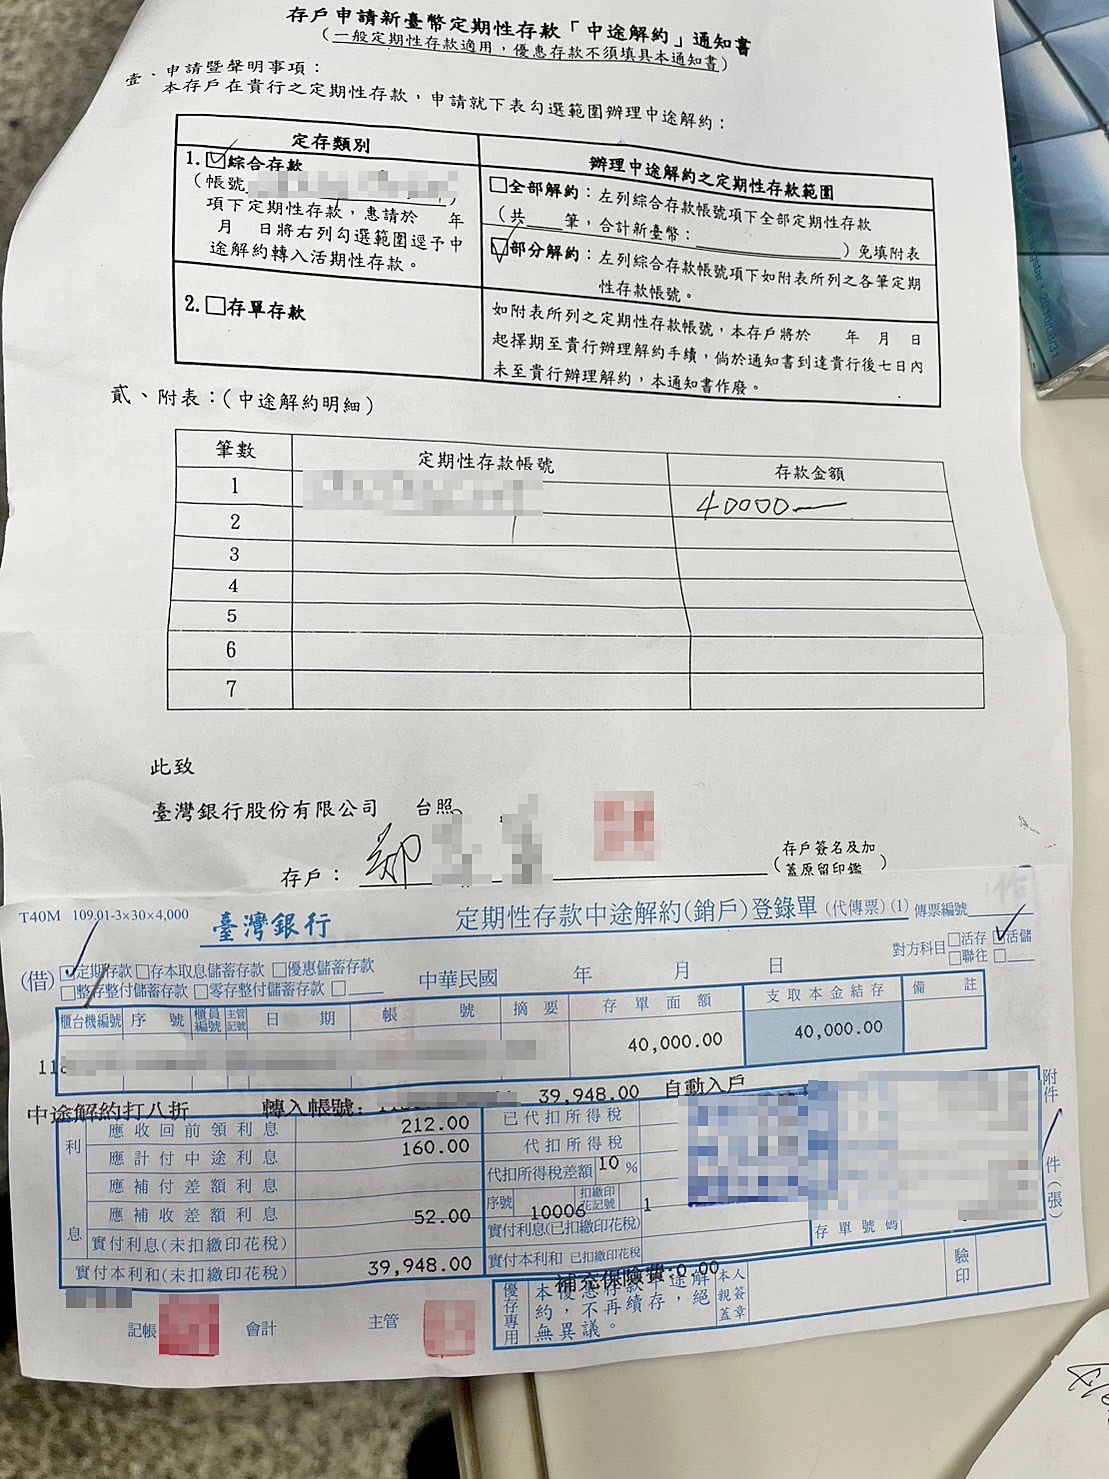 存戶申請新臺幣定期性存款「中途解約」通知書
(一般定期性存款適用,優惠存款不須填具本通知書)
壹、申請暨聲明事項:
本存戶在貴行之定期性存款,申請就下表勾選範圍辦理中途解約:
定存類別
辦理中途解約之定期性存款範圍
1.☑綜合存款
(帳號 )
項下定期性存款,惠請於 年
月 日將右列勾選範圍逕予中
途解約轉入活期性存款。
□全部解約:左列綜合存款帳號項下全部定期性存款
(共 筆,合計新臺幣: )免填附表
☑部分解約:左列綜合存款帳號項下如附表所列之各筆定期
性存款帳號。
2.□存單存款
如附表所列之定期性存款帳號,本存戶將於 年 月 日
起擇期至貴行辦理解約手續,倘於通知書到達貴行後七日內
未至貴行辦理解約,本通知書作廢。
貳、附表:(中途解約明細)
筆數 定期性存款帳號 存款金額
1 40000
2
3
4
5
6
7
此致
臺灣銀行股份有限公司 台照
存戶: 鄭 (存戶簽名及加
蓋原留印鑑)
T40M 109.01-3×30×4,000 臺灣銀行 定期性存款中途解約(銷戶)登錄單(代傳票)(1) 傳票編號
(借) ☑定期存款 □存本取息儲蓄存款 □優惠儲蓄存款
□整存整付儲蓄存款 □零存整付儲蓄存款 □
中華民國 年 月 日
對方科目 □活存 ☑活儲
□聯往 □
櫃台機編號 序號 櫃員編號 主管記號 日期 帳號 摘要 存單面額 支取本金結存 備註
118 40,000.00 40,000.00
中途解約打八折 轉入帳號: 39,948.00 自動入戶
利息
應收回前領利息 212.00 已代扣所得稅
應計付中途利息 160.00 代扣所得稅
應補付差額利息 代扣所得稅差額 10 %
應補收差額利息 52.00 序號 10006 扣繳印花記號 1
實付利息(未扣繳印花稅) 實付利息(已扣繳印花稅)
實付本利和(未扣繳印花稅) 39,948.00 實付本利和 已扣繳印花稅
存單號碼
附件 件(張)
補充保險費:0.00
優存專用 本優惠存款中途解
約,不再續存,絕
無異議。
本人親簽蓋章
驗印
記帳 會計 主管